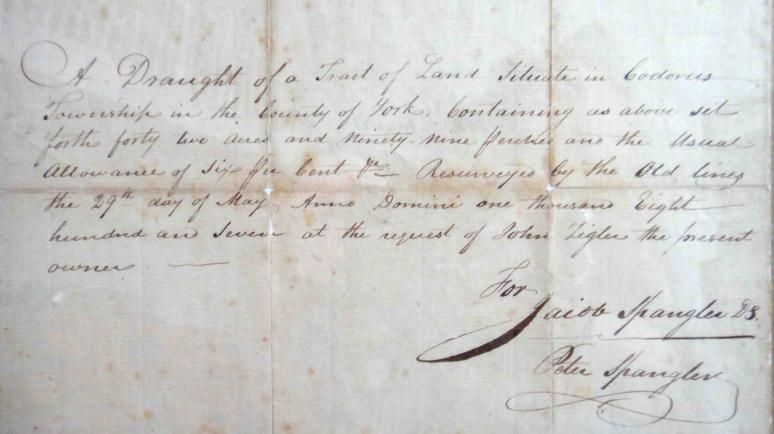 A Draught of a Tract of Land Situate in Codorus
Township in the County of York, Containing as above set
forth forty two acres and Ninety-nine perches and the Usual
Allowance of Six per Cent &c. Resurveyed by the Old lines
the 29th day of May Anno Domini one thousand Eight
hundred and Seven at the request of John Zigler the present
owner —
For
Jacob Spangler DS.
Peter Spangler